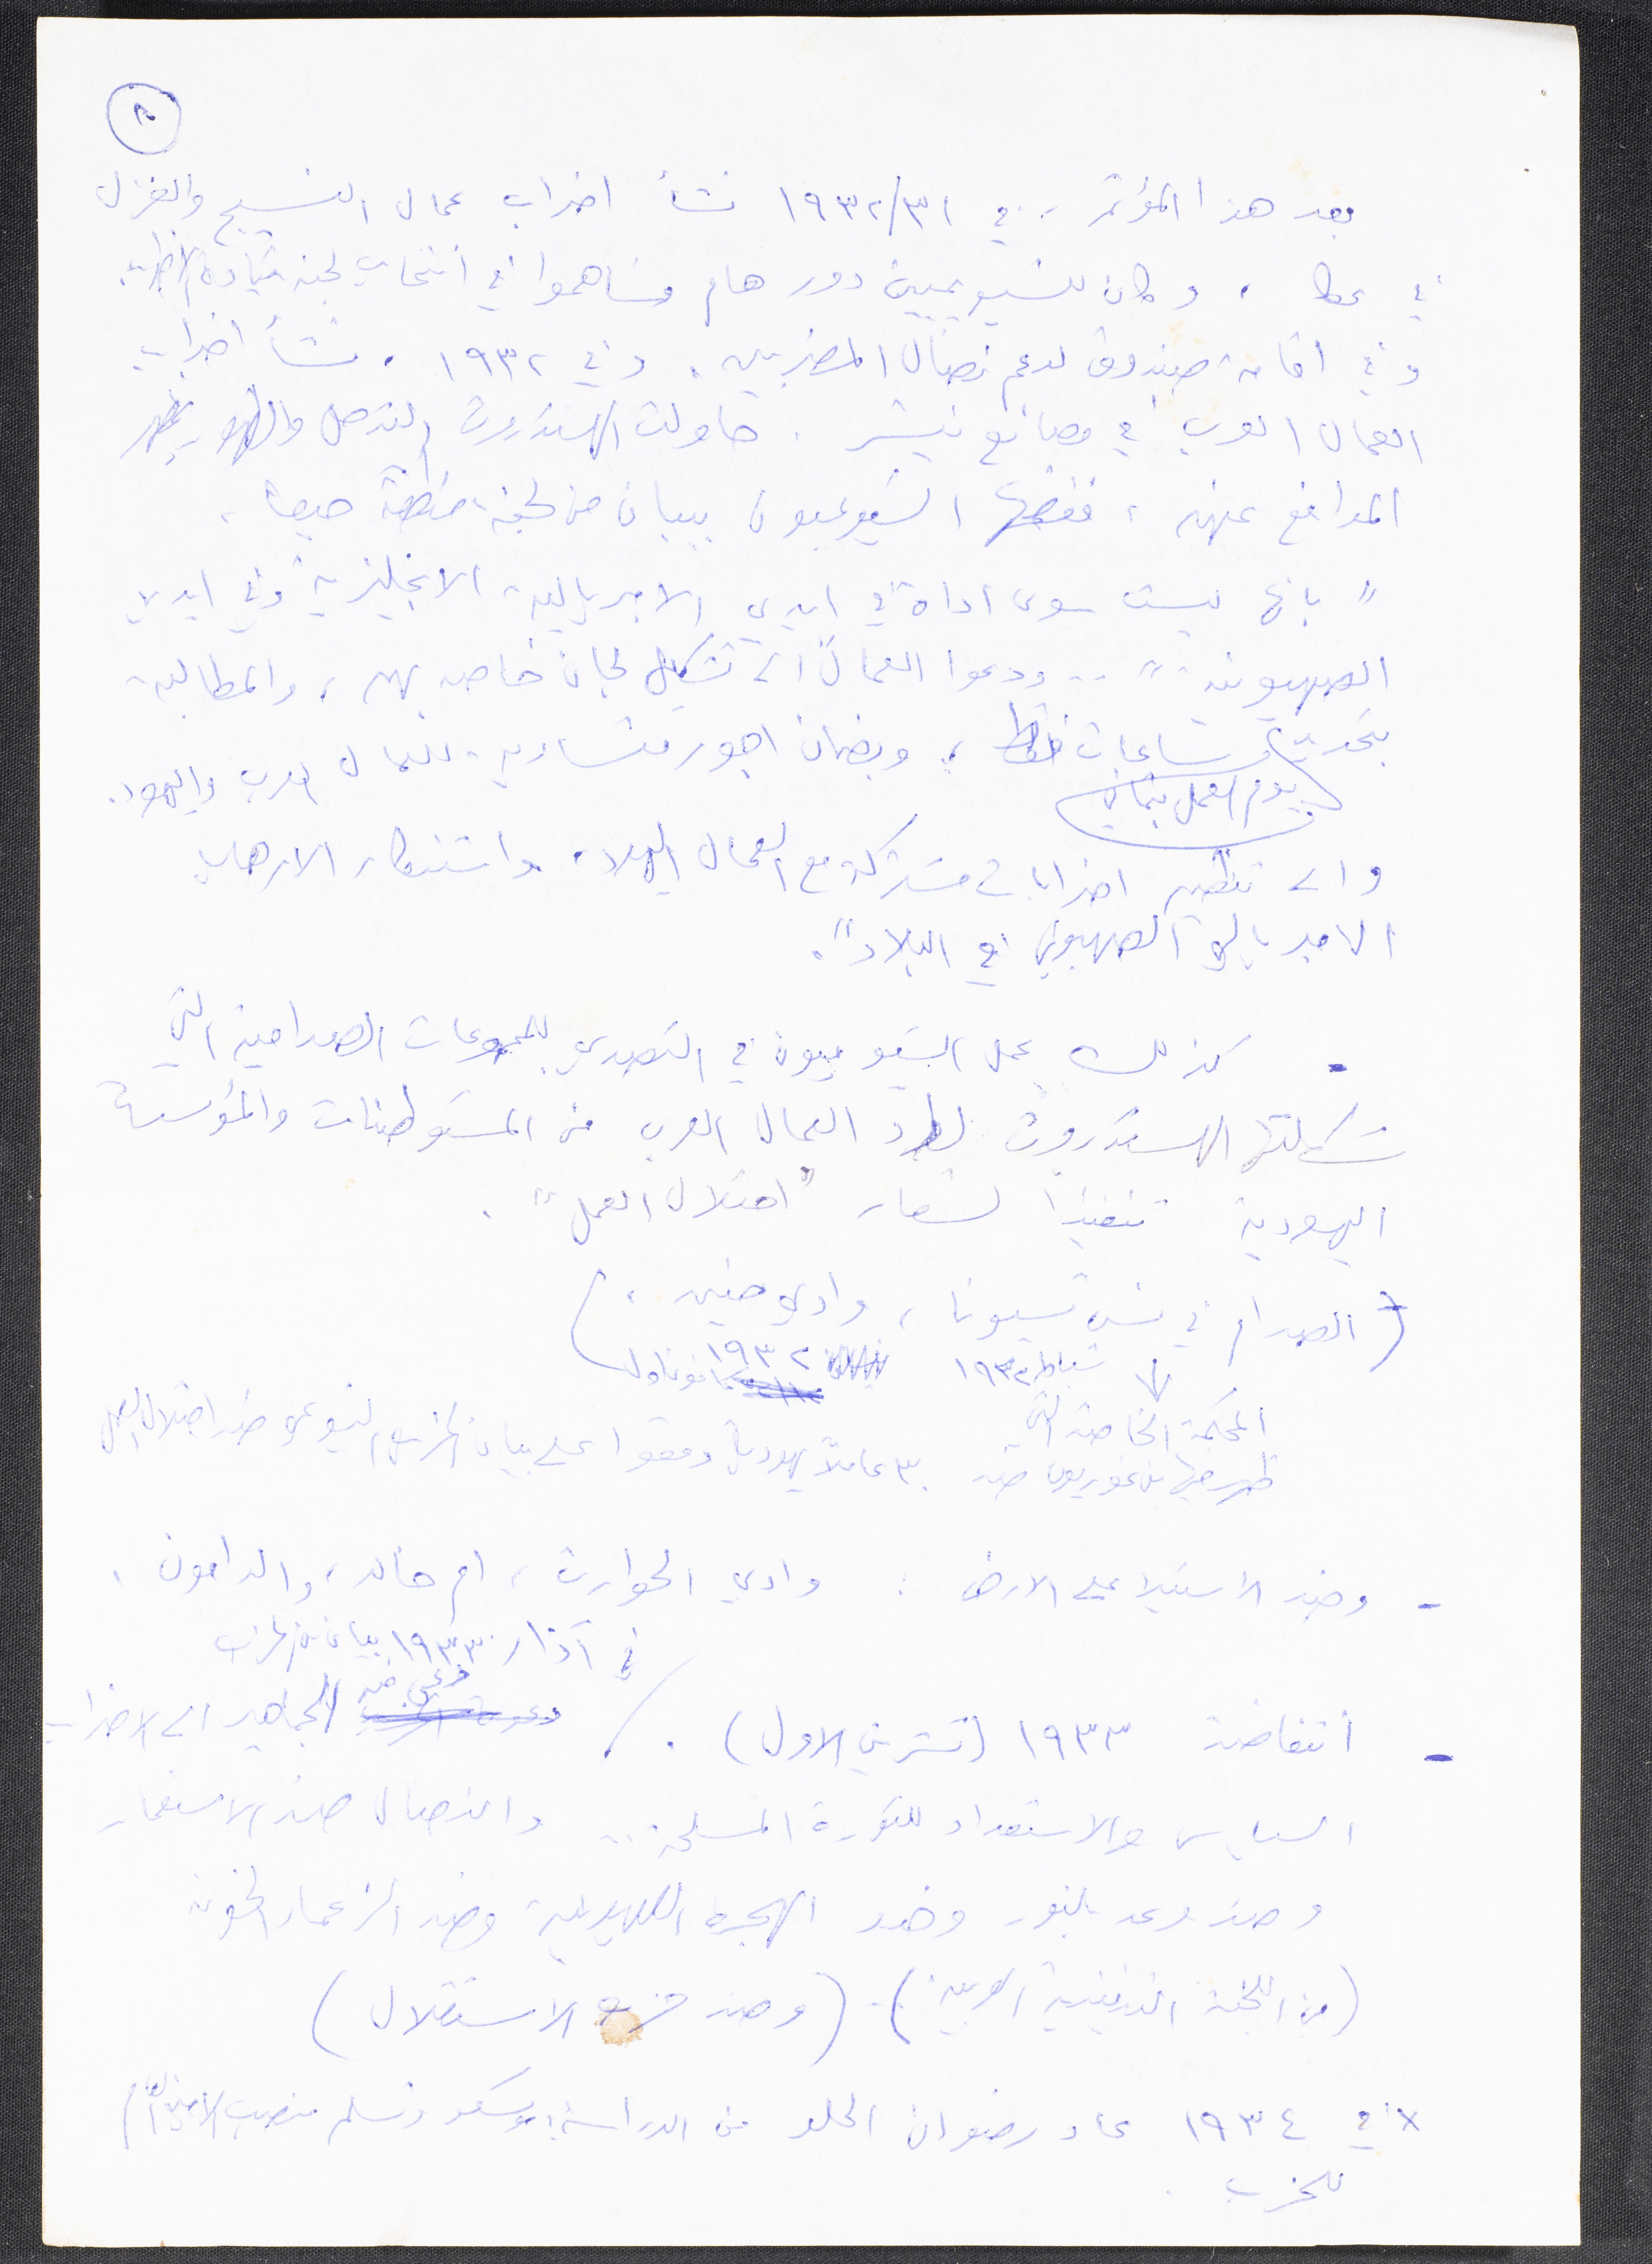 ٨
بعد هذا المؤتمر .. في ١٩٣٢/٣١ نشأ اضراب عمال النسيج والغزل
في عكا ، وكان للشيوعيين دور هام وساهموا في انتخاب لجنة قيادة الاضراب.
وفي اقامة صندوق لدعم نضال المضربين . وفي ١٩٣٢ ، نشأ اضراب
العمال العرب في مصانع نيشر . حاولت الهستدروت التدخل والظهور بمظهر
المدافع عنهم ، ففضحها الشيوعيون ببيان من لجنة منطقة حيفا ،
" بانها ليست سوى اداة في ايدي الامبريالية الانجليزية وفي ايدي
الصهيونية " .. ودعوا العمال الى تشكيل لجان خاصة بهم ، والمطالبة
بتحديد ساعات فقط ، وبضمان اجور متساوية للعمال العرب واليهود .
يوم العمل بثماني
والى تنظيم اضرابات مشتركة مع العمال اليهود ، واستنكار الارهاب
الامبريالي الصهيوني في البلاد " .
- كذلك عمل الشيوعيون في التصدي للمجموعات الصدامية التي
شكلتها الهستدروت لطرد العمال العرب من المستوطنات والمؤسسات
اليهودية تنفيذا لشعار " احتلال العمل " .
( الصدام في نس تسيونا ، وادي حنين ، )
شباط ١٩٣٢ ١٩٣٢ كانون اول
المحكمة الخاصة التي
ظهر فيها بن غوريون ضد ٣٠ عاملا يهوديا وقعوا على بيان الحزب الشيوعي ضد احتلال العمل
- وضد الاستيلا على الارض : وادي الحوارث ، ام خالد ، والدامون .
في آذار ١٩٣٣ بيان من الحزب
- انتفاضة ١٩٣٣ (تشرين الاول) . / دعى فيه الجماهير الى الاضراب
السياسي والاستعداد للثورة المسلحة .. والنضال ضد الاستعمار
وضد وعد بلفور وضد الهجرة الصهيونية وضد الزعماء الخونة
(من اللجنة التنفيذية العربية) . (وضد حزب الاستقلال )
× في ١٩٣٤ عاد رضوان الحلو من الدراسة بموسكو وتسلم منصب الامين العام
للحزب .